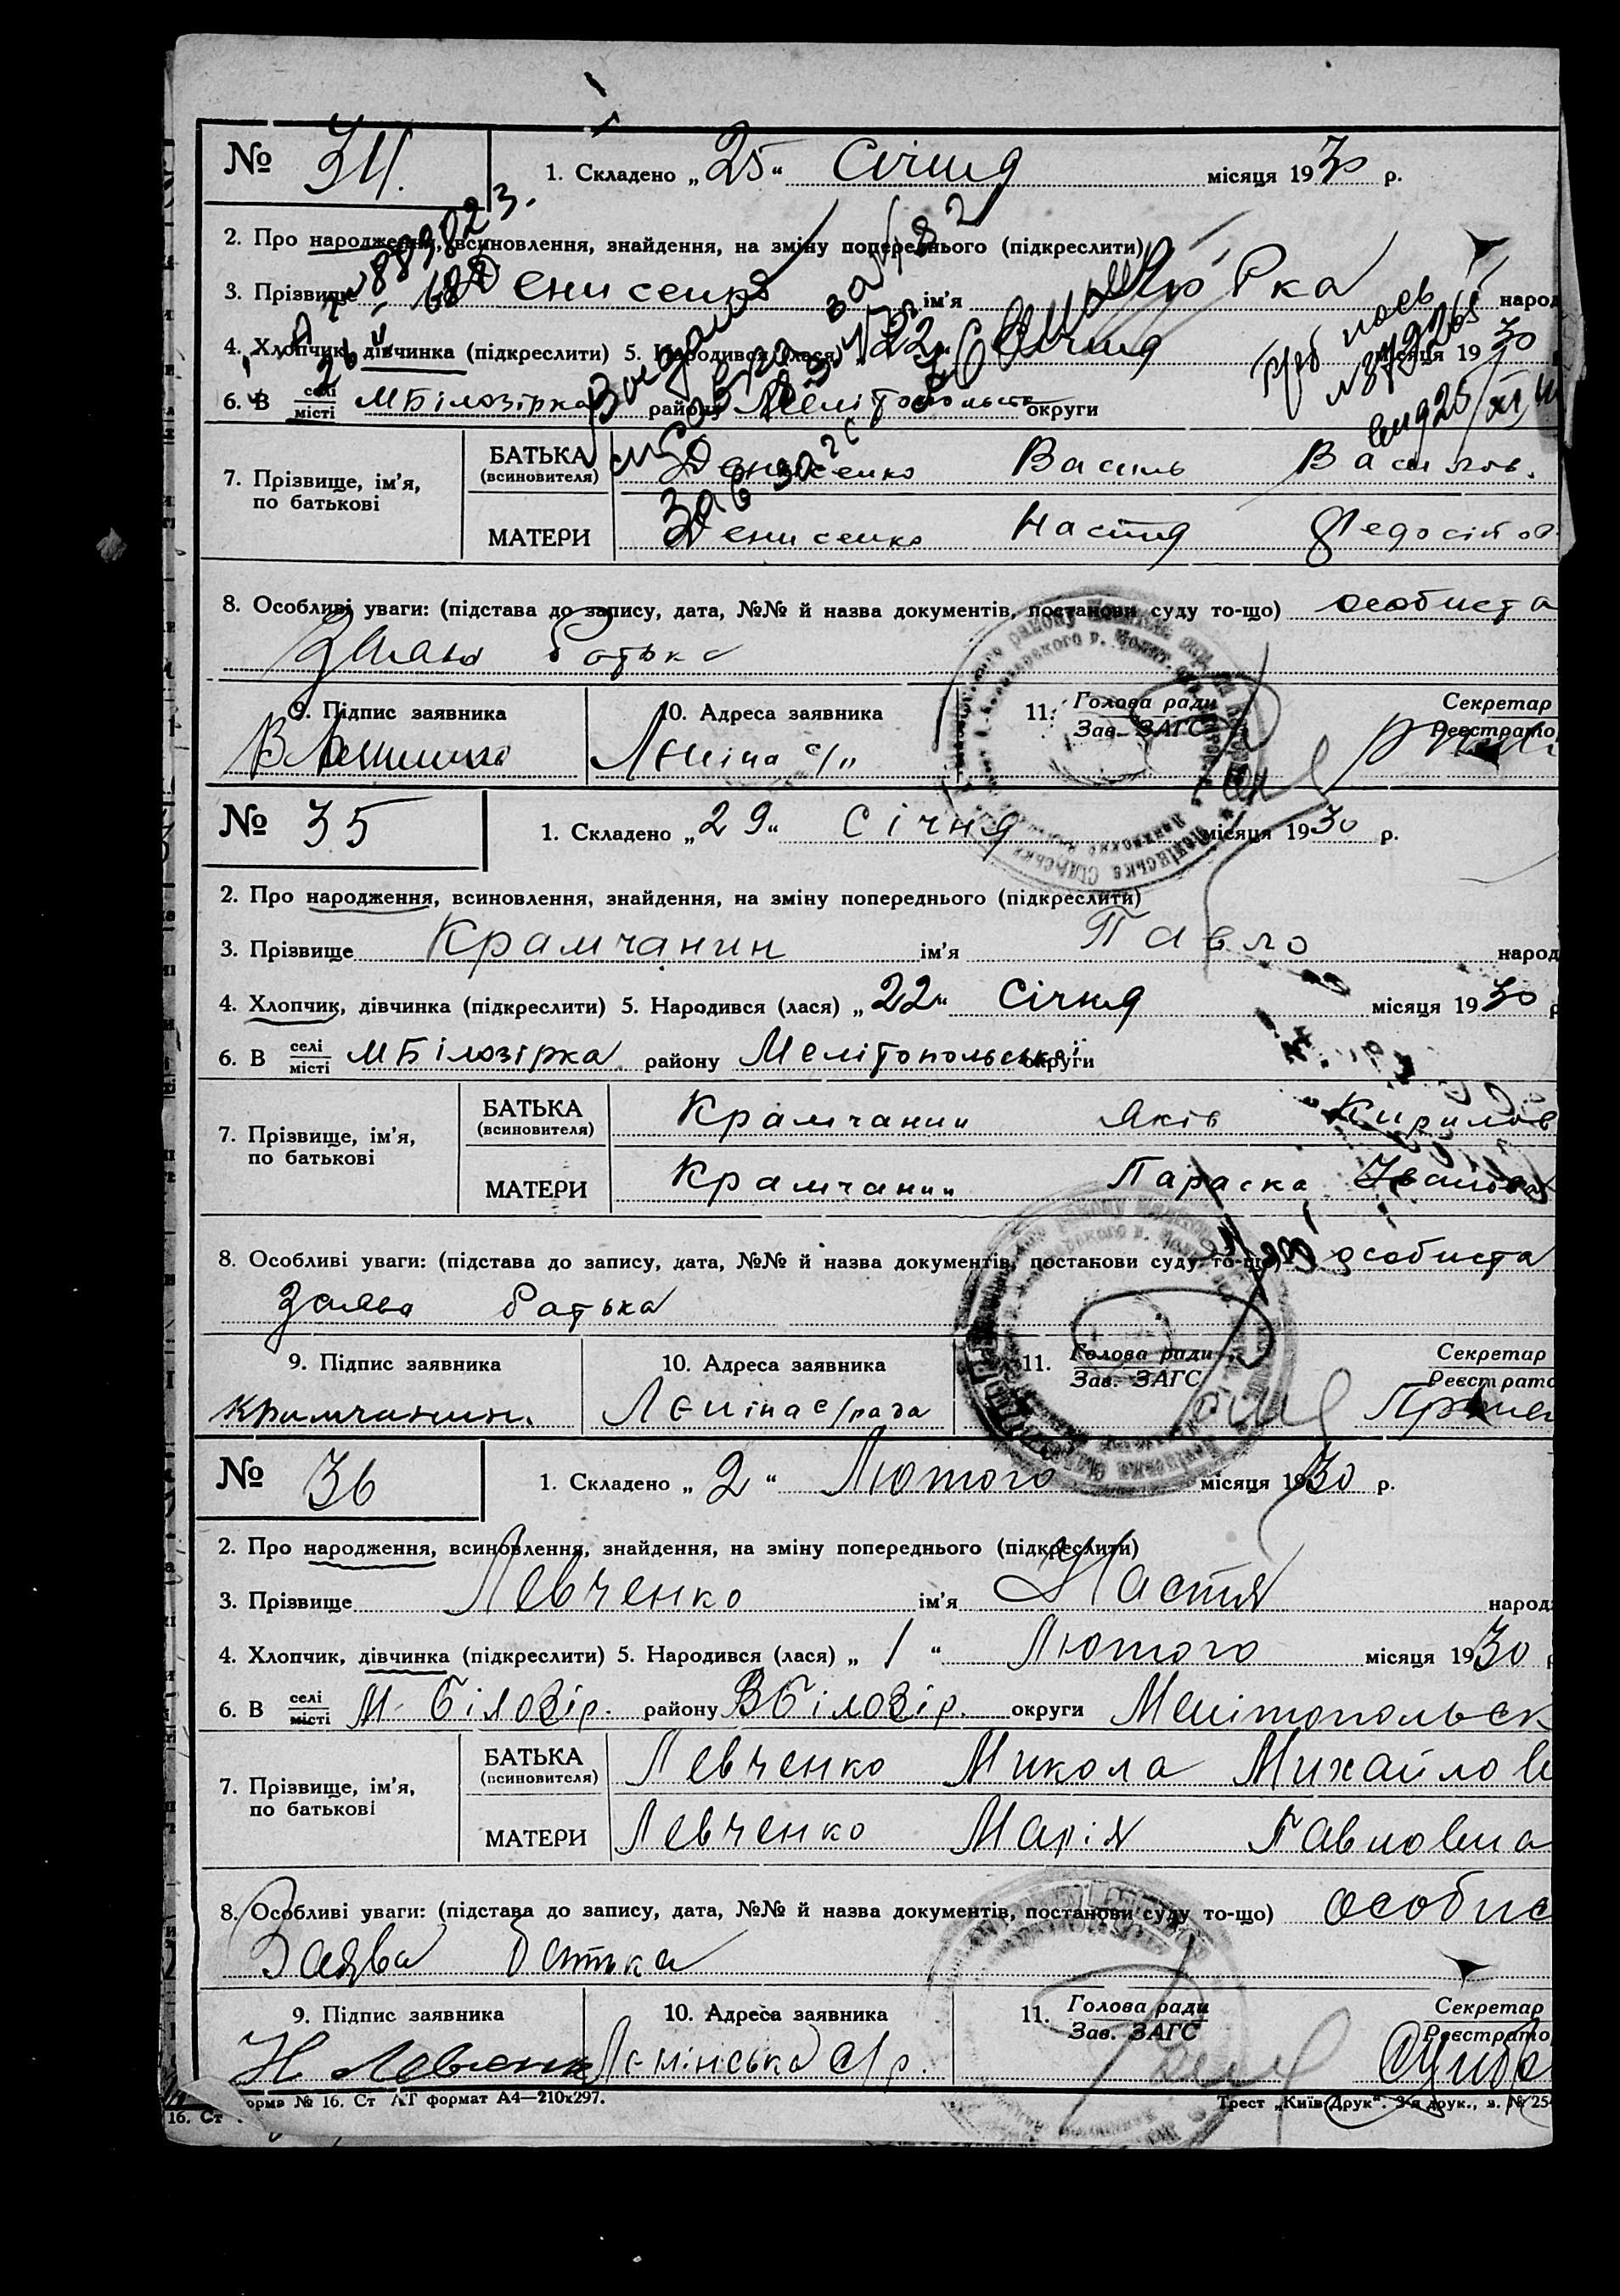 № 34. 1. Складено „25“ Січня місяця 1930 р.
2. Про народження, всиновлення, знайдення, на зміну попереднього (підкреслити)
3. Прізвище Денисенко ім'я народ
4. Хлопчик, дівчинка (підкреслити) 5. Народився (лася) „22“ Січня місяця 1930
6. В селі місті МБілозірка району Мелітопольськ округи
7. Прізвище, ім'я, по батькові
БАТЬКА (всиновителя) Денисенко Василь Васильов.
МАТЕРИ Денисенко Настя Федосіїов
8. Особливі уваги: (підстава до запису, дата, №№ й назва документів, постанови суду то-що) особиста
заява батька
9. Підпис заявника 10. Адреса заявника 11. Голова ради Зав. ЗАГС Секретар Реєстрато
Леніна с/
№ 35 1. Складено „29“ Січня місяця 1930 р.
2. Про народження, всиновлення, знайдення, на зміну попереднього (підкреслити)
3. Прізвище Крамчанин ім'я Павло народ
4. Хлопчик, дівчинка (підкреслити) 5. Народився (лася) „22“ Січня місяця 1930 р
6. В селі місті МБілозірка району Мелітопольської округи
7. Прізвище, ім'я, по батькові
БАТЬКА (всиновителя) Крамчанин Яків Кирилов
МАТЕРИ Крамчанин Параска Іванов
8. Особливі уваги: (підстава до запису, дата, №№ й назва документів, постанови суду то-що) особиста
заява батька
9. Підпис заявника 10. Адреса заявника 11. Голова ради Зав. ЗАГС Секретар Реєстрато
Крамчанин. Леніна с/рада
№ 36 1. Складено „2“ Лютого місяця 1930 р.
2. Про народження, всиновлення, знайдення, на зміну попереднього (підкреслити)
3. Прізвище Левченко ім'я Настя народ
4. Хлопчик, дівчинка (підкреслити) 5. Народився (лася) „1“ Лютого місяця 1930
6. В селі місті М-Білозір. району ВБілозір. округи Мелітопольськ
7. Прізвище, ім'я, по батькові
БАТЬКА (всиновителя) Левченко Микола Михайлов
МАТЕРИ Левченко Марія Павловна
8. Особливі уваги: (підстава до запису, дата, №№ й назва документів, постанови суду то-що) особис
Заява батька
9. Підпис заявника 10. Адреса заявника 11. Голова ради Зав. ЗАГС Секретар Реєстрато
Н Левченк Ленінська с/р.
орма № 16. Ст АТ формат А4—210х297. Трест „Київ-Друк“. 3-я друк., з. № 254
16. Ст